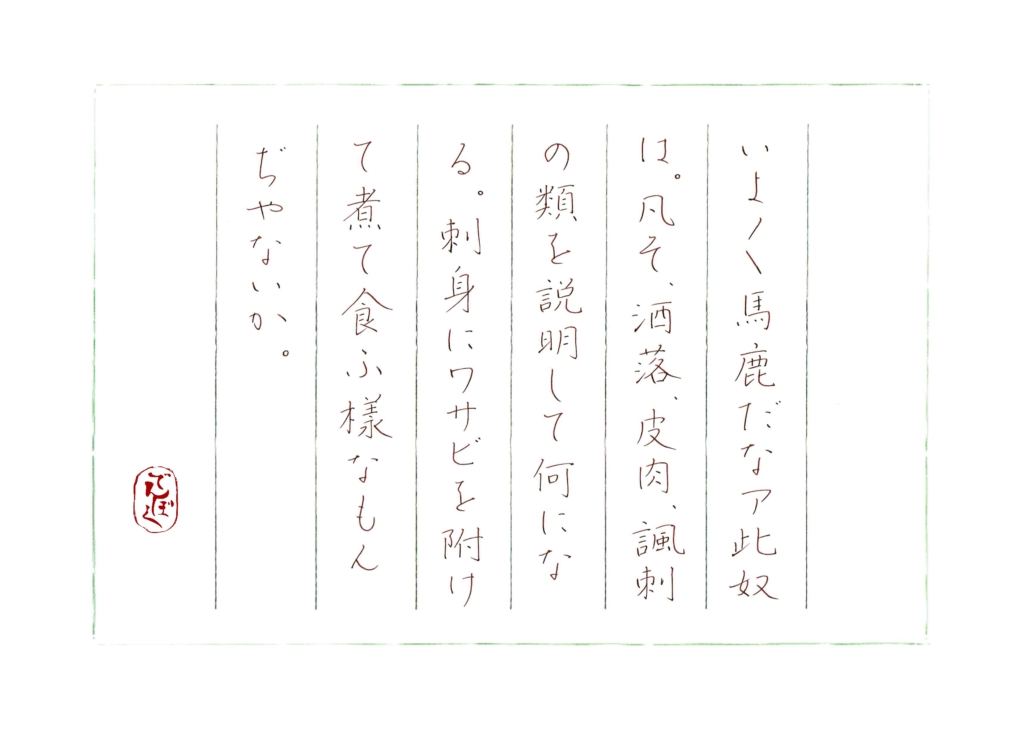 いよ〳〵馬鹿だなア此奴
は。凡そ、洒落、皮肉、諷刺
の類を説明して何にな
る。刺身にワサビを附け
て煮て食ふ様なもん
ぢやないか。
でんぼく